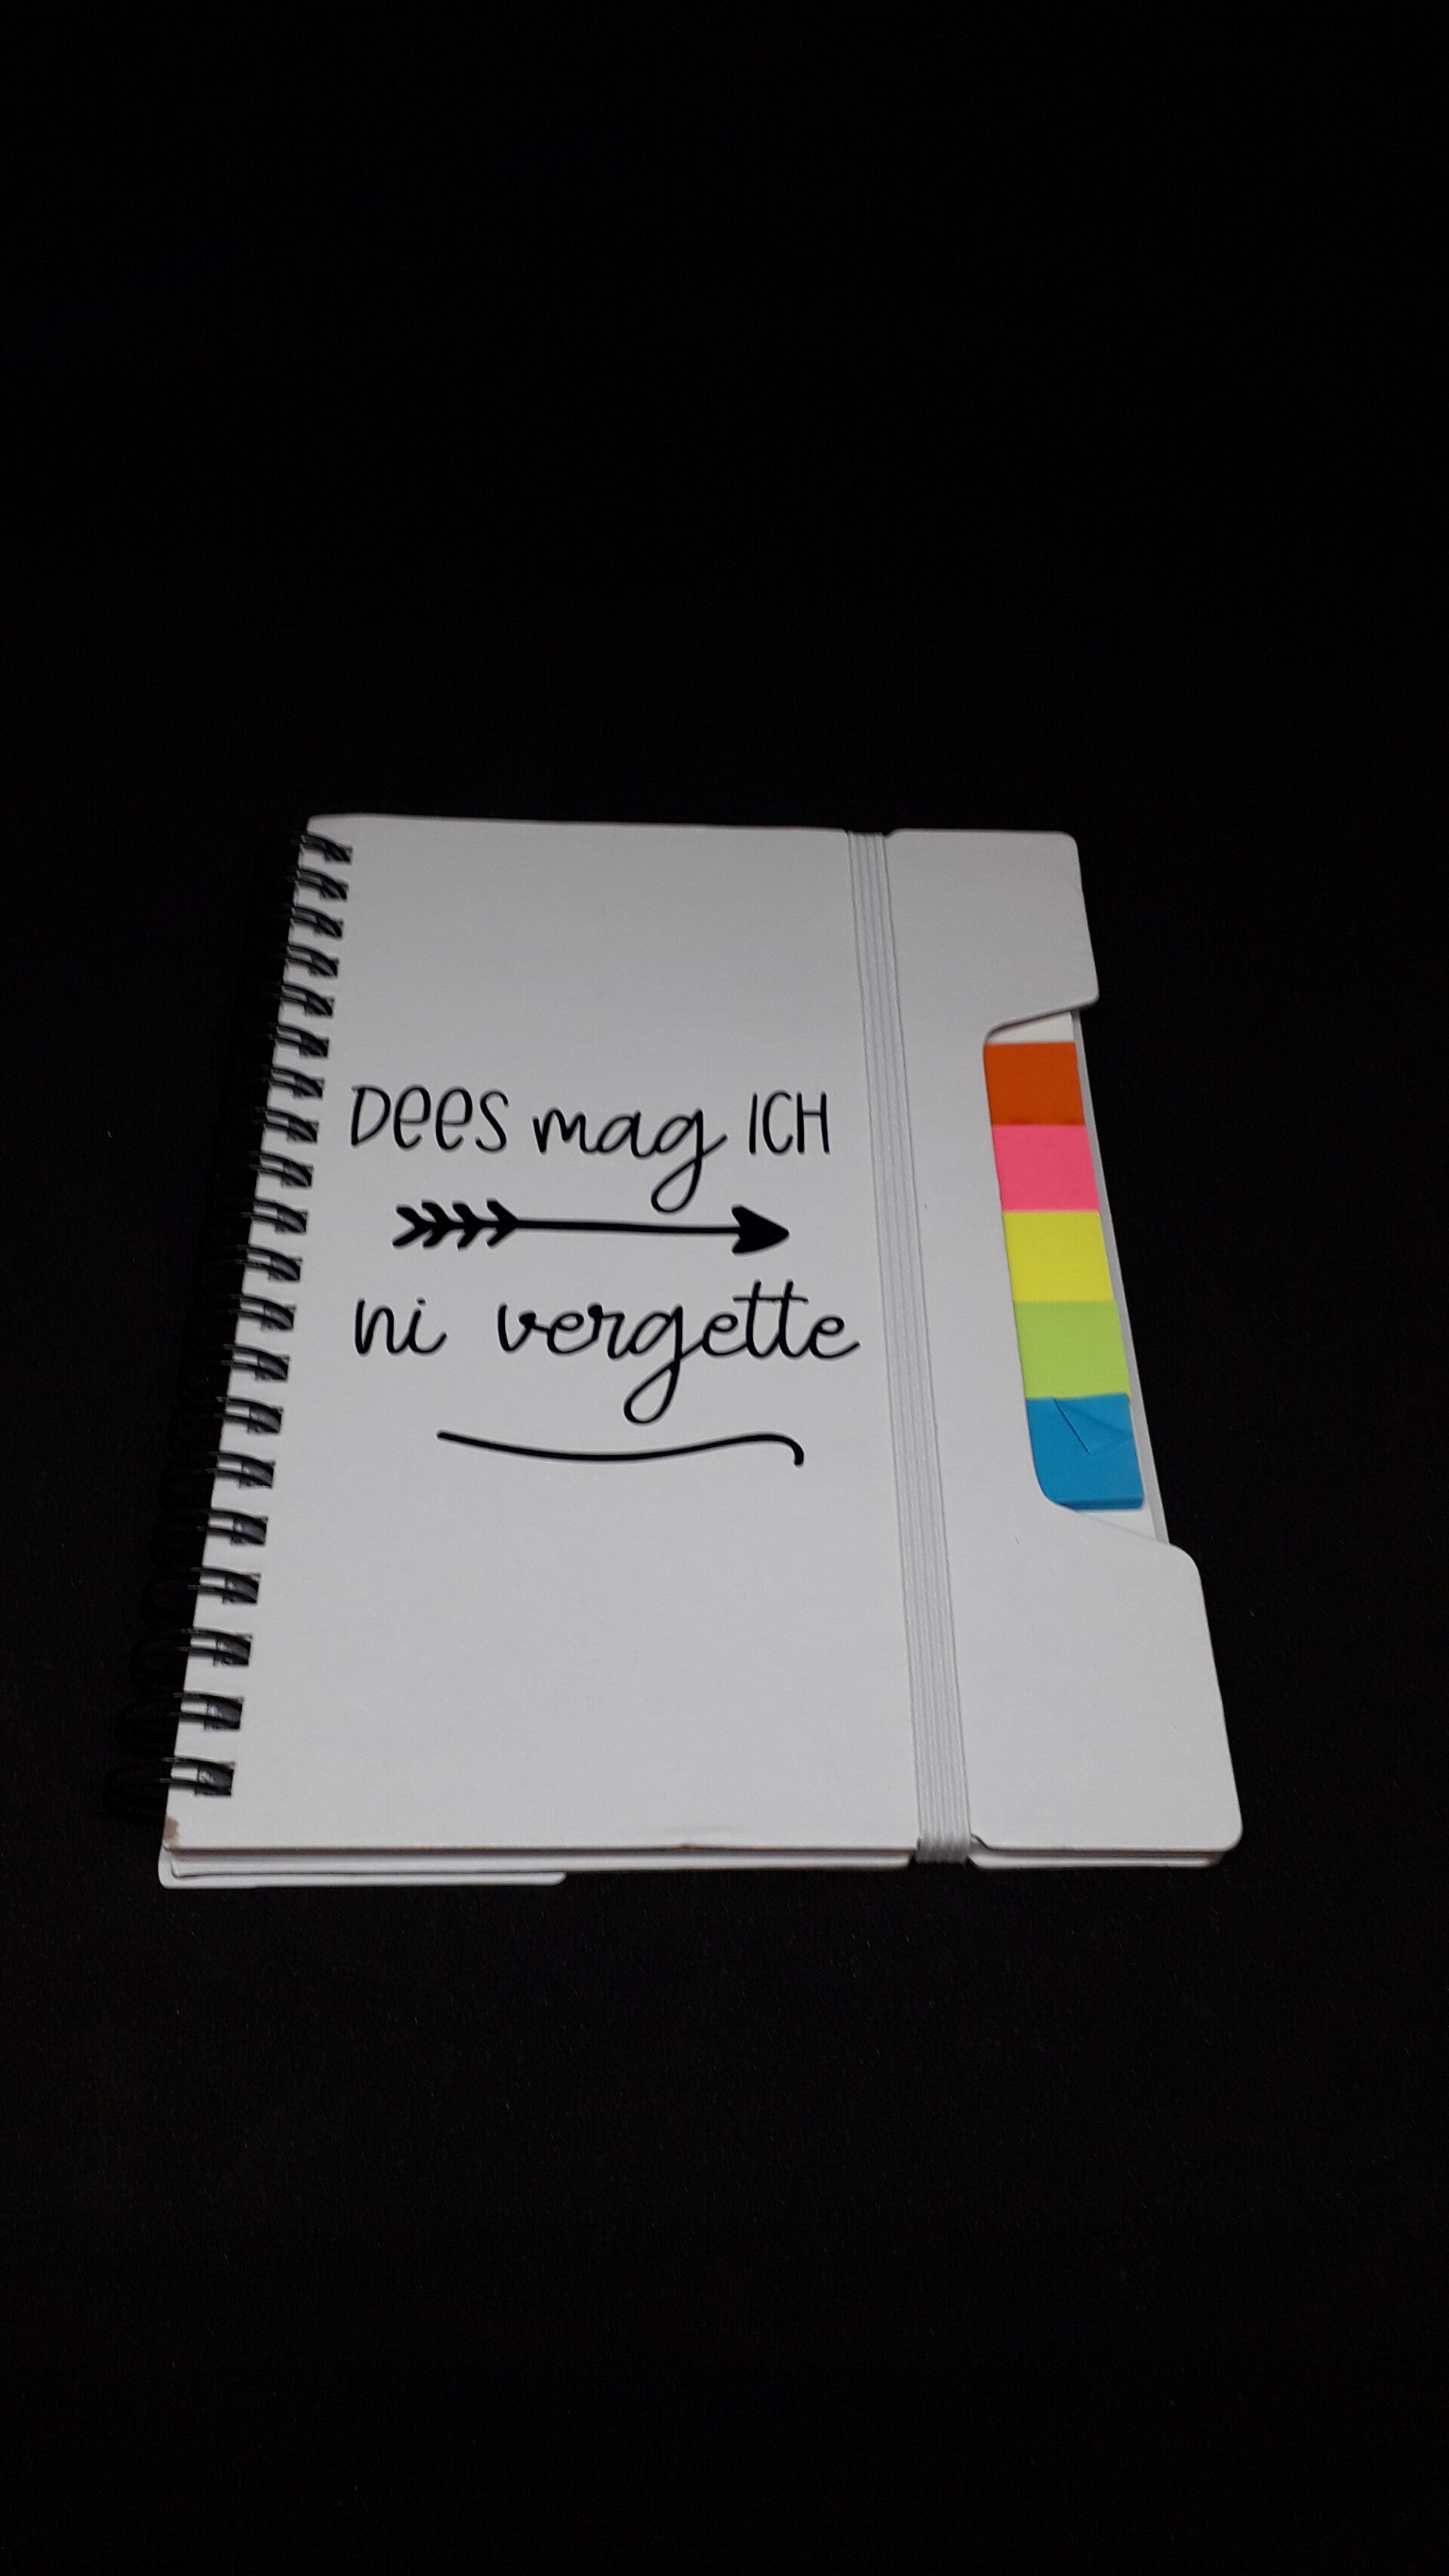 Dees mag ICH
ni vergette